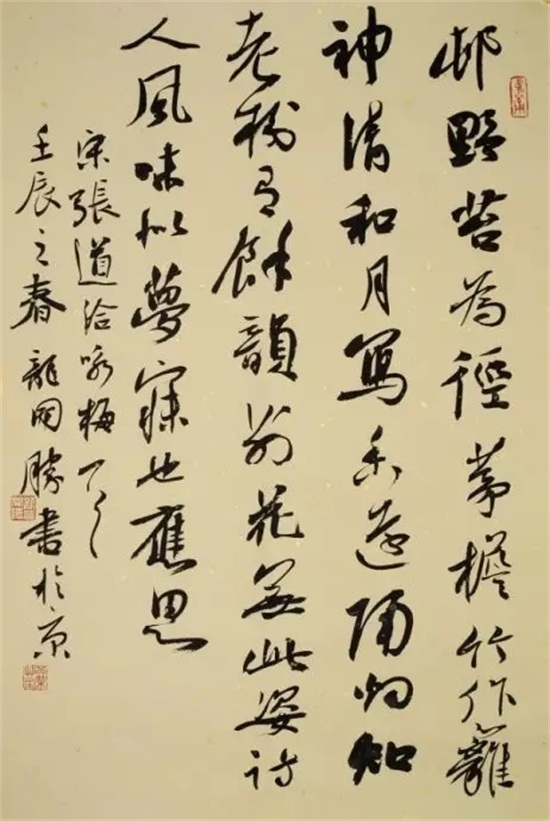 邨野苔為徑茅檐竹作籬
神清和月寫香遠隔知
老有餘韻別花無此姿詩
人風味似夢寐也應思
宋張道洽詠梅
壬辰之春龍開勝書於京